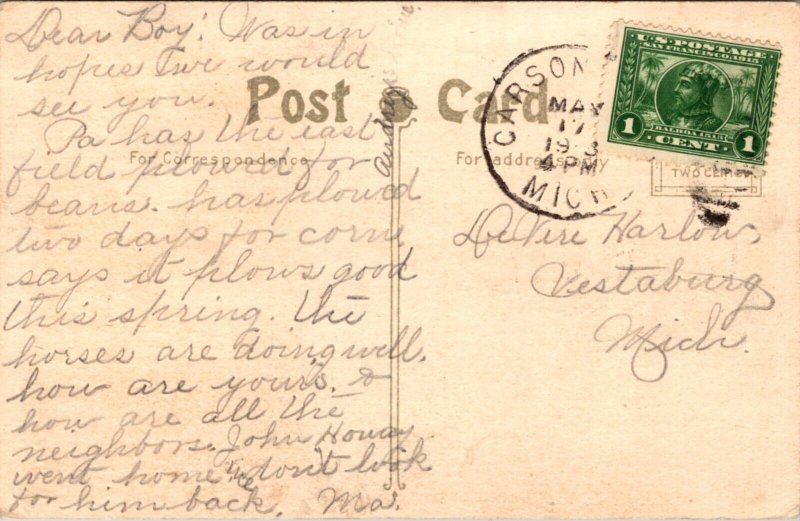 Dear Boy: Was in
hopes we would
see you.
Pa has the east
field plowed for
beans. has plowed
two days for corn
says it plows good
this spring. The
horses are doing well.
how are yours. &
how are all the
neighbors. John
went home we dont look
for him back. Ma.
Post Card
For Correspondence
For address only
CARSON
MAY
17
4 PM
MICH
U.S. POSTAGE
SAN FRANCISCO, 1915
BALBOA 1513
1 CENT 1
TWO CENTS
DeVere Harlow,
Vestaburg
Mich.